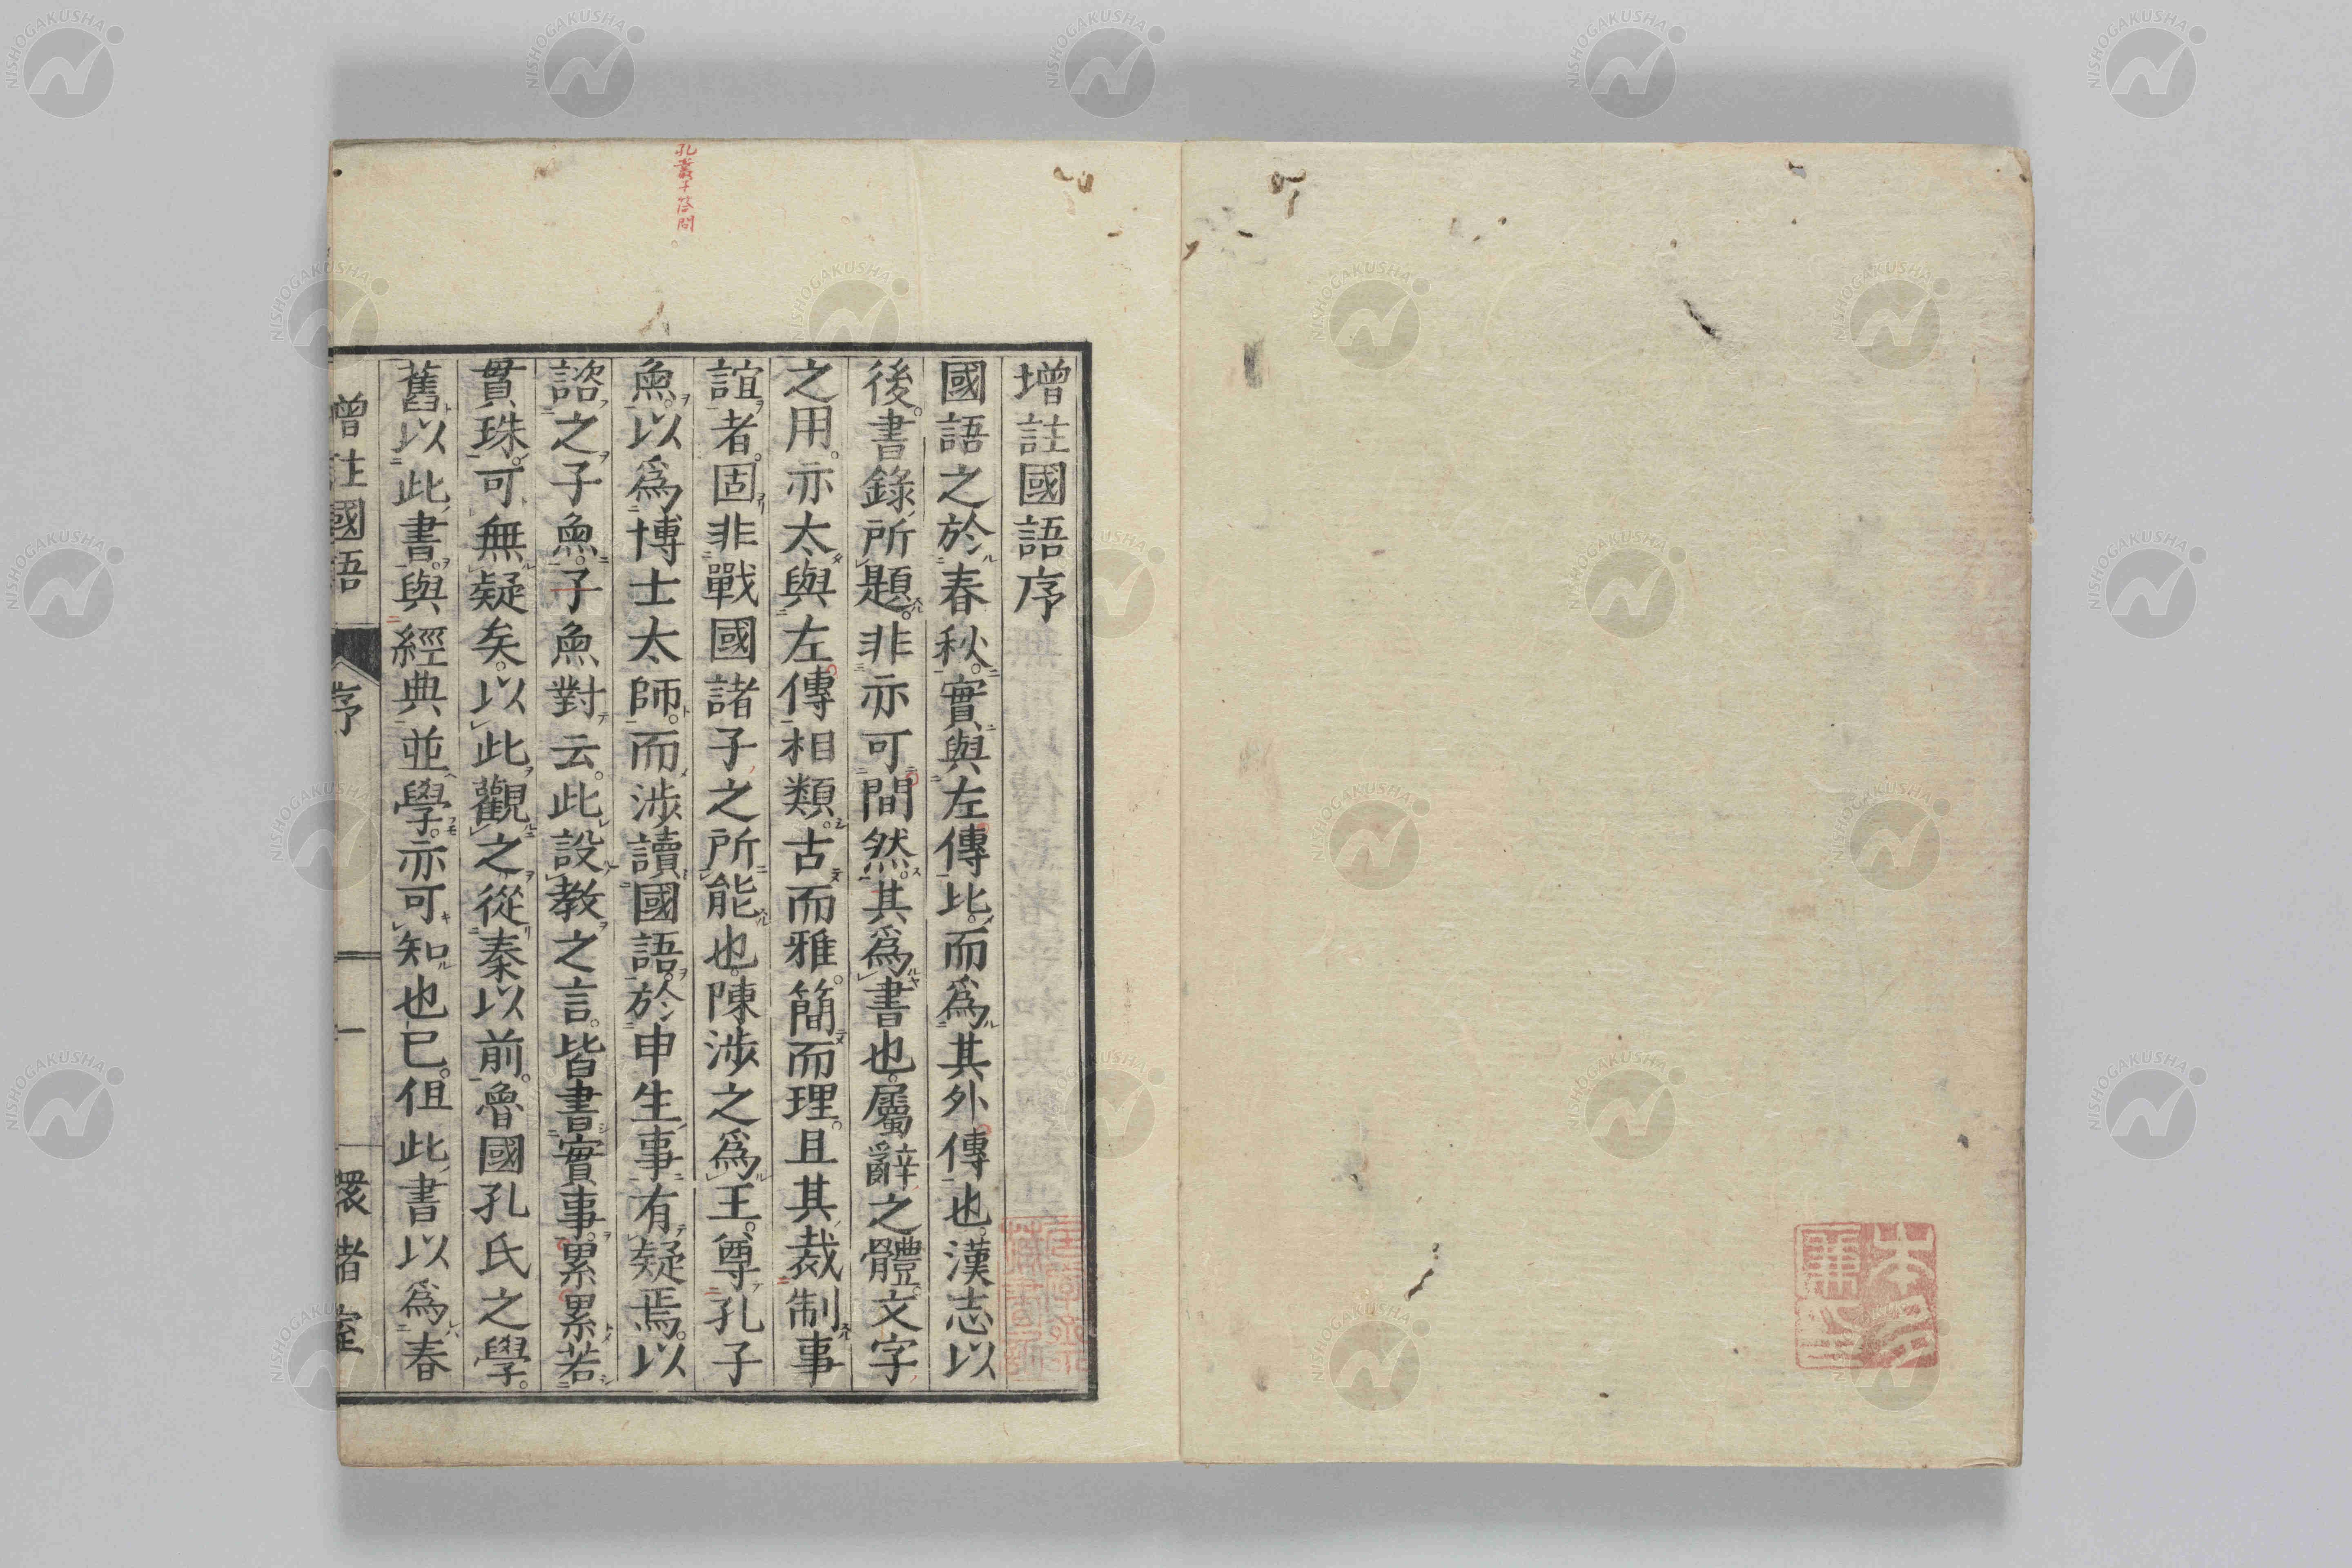 孔叢子答問
增註國語序
國語之於春秋實與左傳比而爲其外傳也漢志以
後書錄所題非亦可間然其爲書也屬辭之體文字
之用亦太與左傳相類古而雅簡而理且其裁制事
誼者固非戰國諸子之所能也陳涉之爲王尊孔子
魚以爲博士太師而涉讀國語於申生事有疑焉以
諮之子魚子魚對云此設教之言皆書實事累累若
貫珠可無疑矣以此觀之從秦以前魯國孔氏之學
舊以此書與經典並學亦可知也已但此書以爲春
增註國語
序
一
環堵室
NISHOGAKUSHA